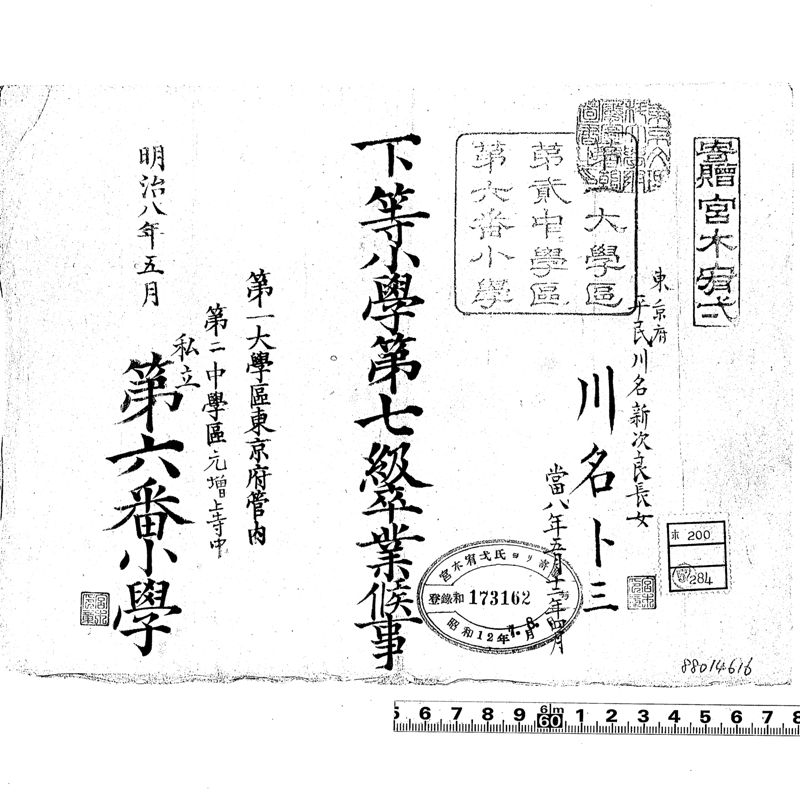 寄贈宮木宥弌
東京府
平民川名新次良長女
川名卜三
當八年五月十二年四月
第一大學區
第貳中學區
第六番小學
下等小學第七級卒業候事
第一大學區東京府管內
第二中學區元增上寺中
私立
第六番小學
明治八年五月
宮木宥弌氏ヨリ
登錄和 173162
昭和12年7.8月
ホ 200
284
88014616
5 6 7 8 9 6m 60 1 2 3 4 5 6 7 8